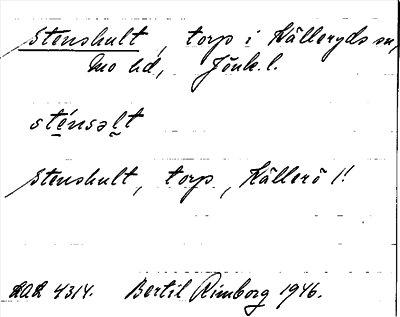 Stenshult, torp i Källeryds sn,
Mo hd, Jönk. l.
sténsəlt
Stenshult, torp, Källerö 1!
4314. Bertil Rimborg 1946.